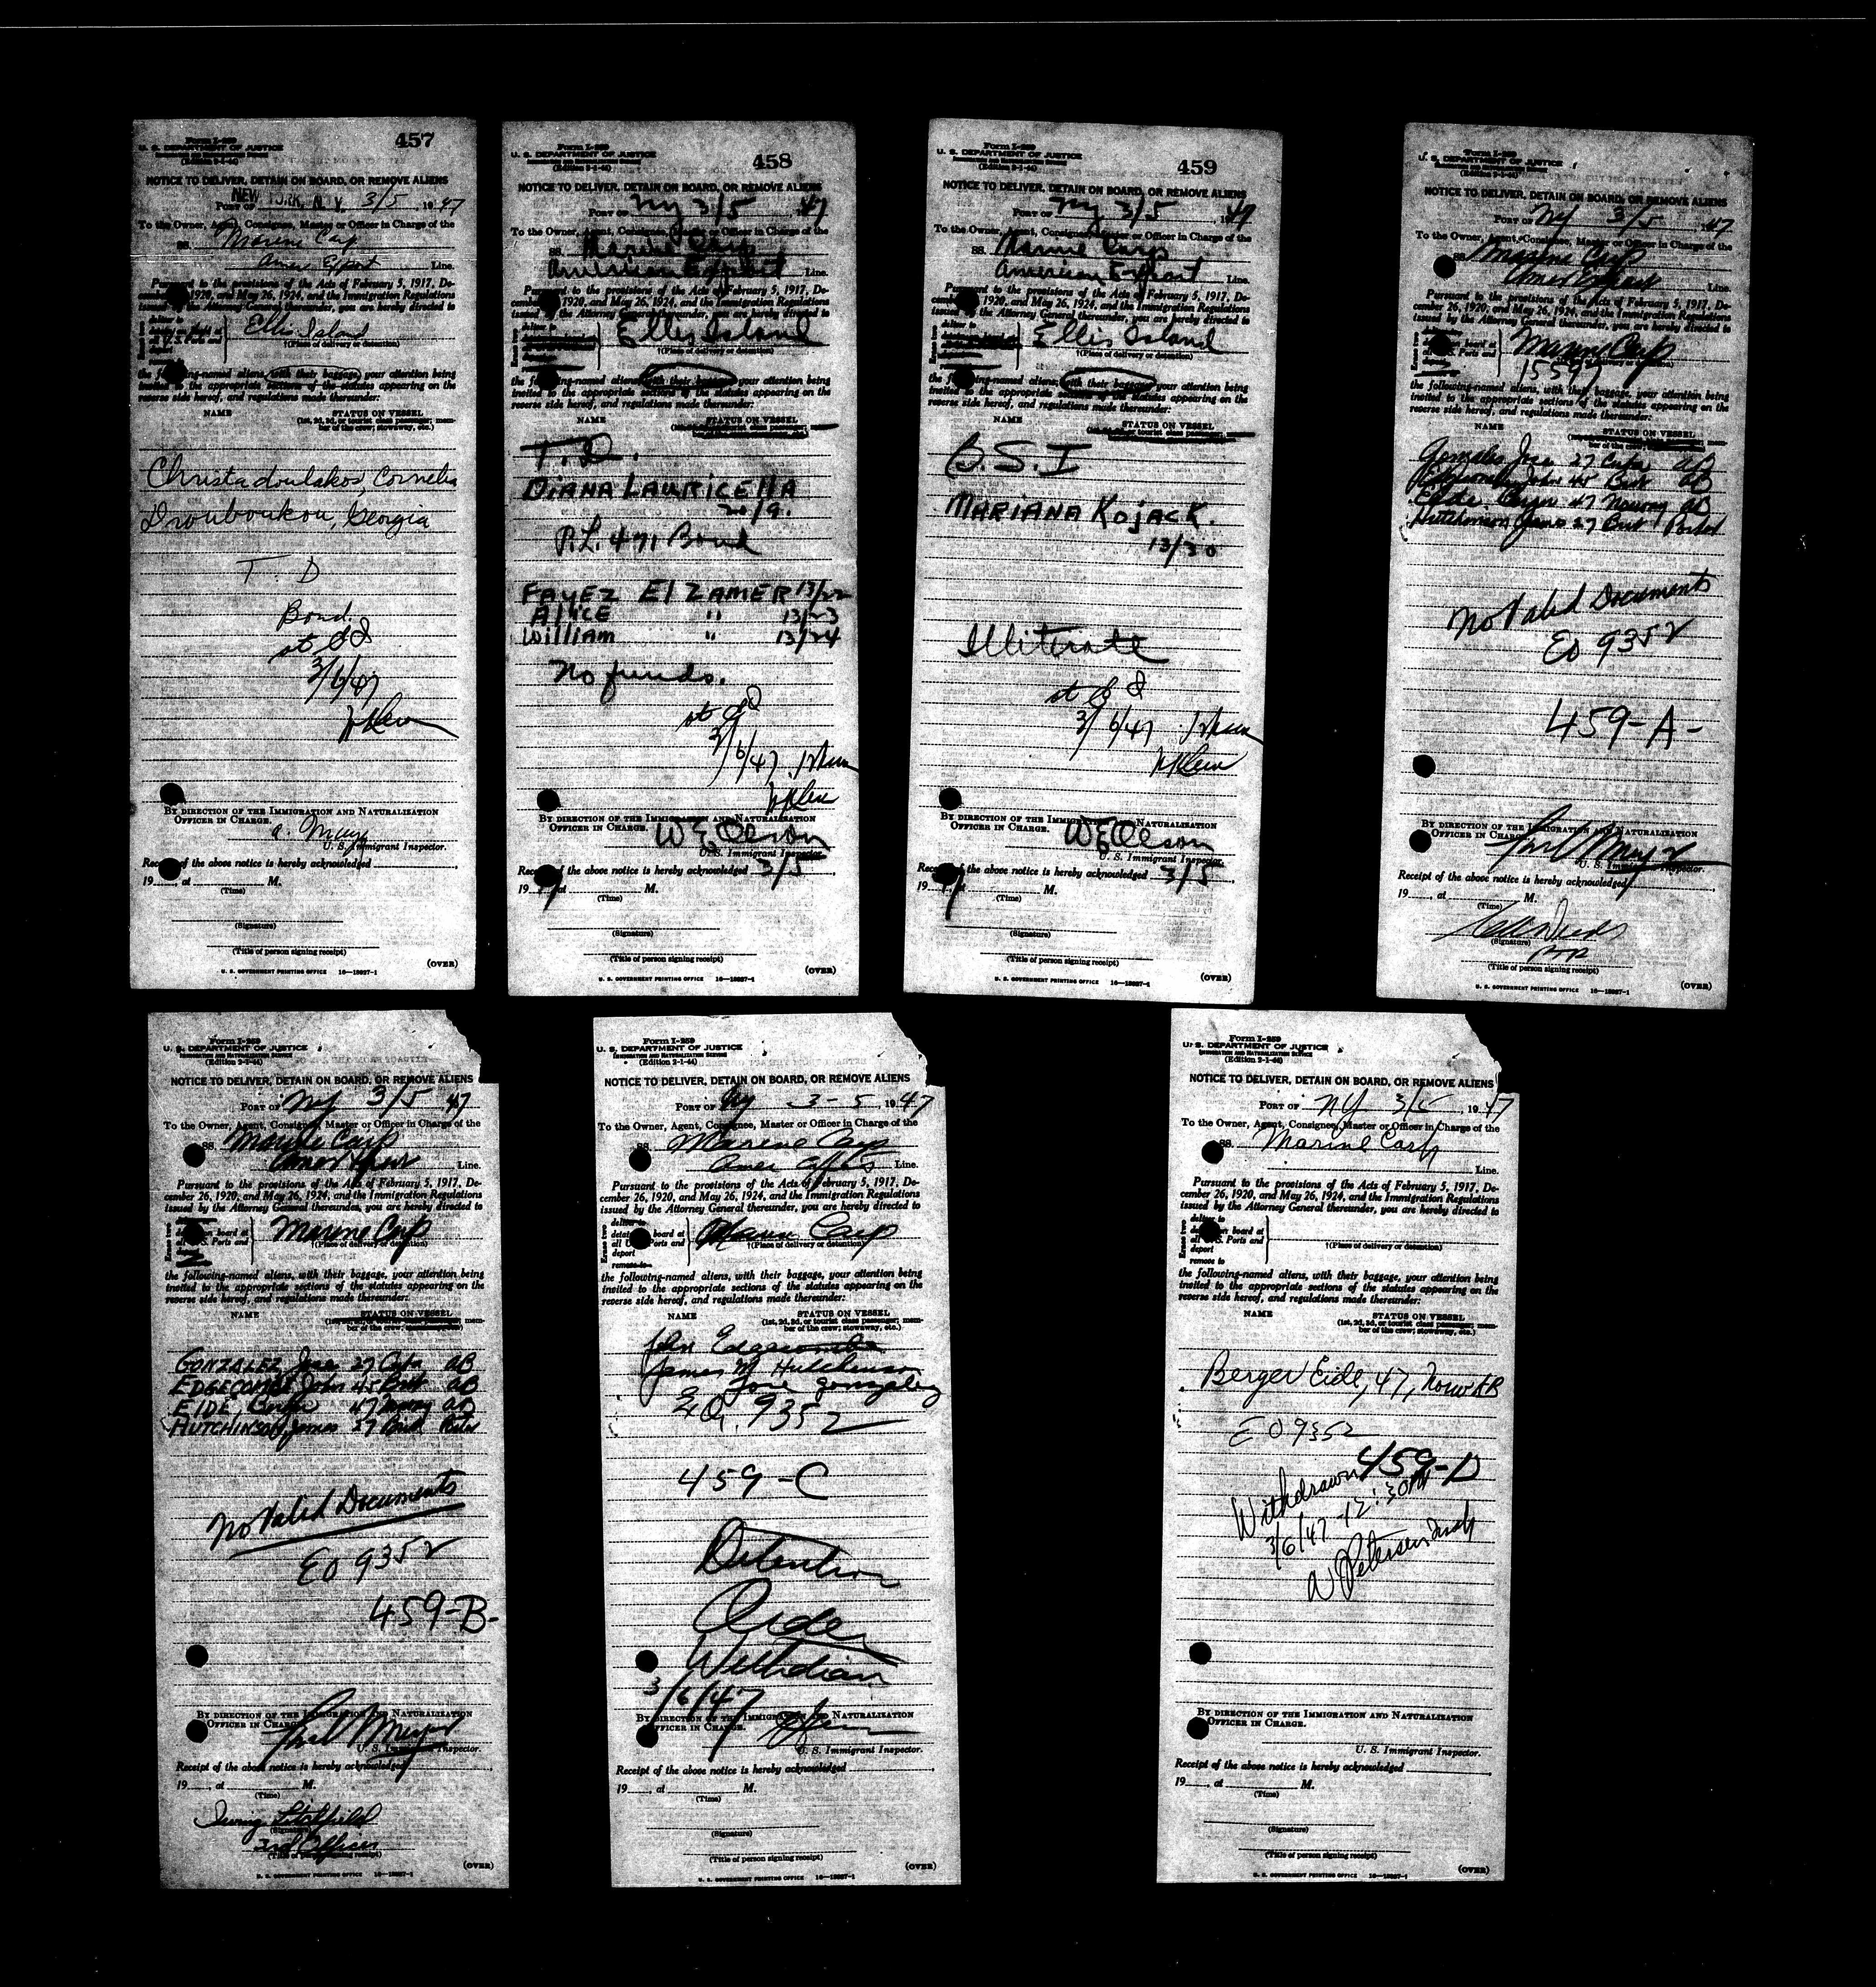 457
Form I-259
U. S. DEPARTMENT OF JUSTICE
(Edition 2-1-44)
NOTICE TO DELIVER, DETAIN ON BOARD, OR REMOVE ALIENS
NEW YORK, N. Y.
PORT OF 3/5 1947
To the Owner, Agent, Consignee, Master or Officer in Charge of the
SS. Marine Carp
Amer Export Line.
Pursuant to the provisions of the Acts of February 5, 1917, De-
1920, and May 26, 1924, and the Immigration Regulations
issued by the Attorney General thereunder, you are hereby directed to
Ellis Island
†(Place of delivery or detention)
the ing-named aliens, with their baggage, your attention being
invited to the appropriate sections of the statutes appearing on the
reverse side hereof, and regulations made thereunder:
NAME STATUS ON VESSEL
(1st, 2d, 3d, or tourist class passenger; mem-
ber of the crew; stowaway, etc.)
Christadoulakos, Cornelia
Drouboukou, Georgia
T. D
Bond
3/6/47
BY DIRECTION OF THE IMMIGRATION AND NATURALIZATION
OFFICER IN CHARGE.
U. S. Immigrant Inspector.
Rece of the above notice is hereby acknowledged
19 , at M.
(Time)
(Signature)
(Title of person signing receipt)
(OVER)
U. S. GOVERNMENT PRINTING OFFICE 16—18927-1
Form I-259
U. S. DEPARTMENT OF JUSTICE
(Edition 2-1-44)
458
NOTICE TO DELIVER, DETAIN ON BOARD, OR REMOVE ALIENS
PORT OF NY 3/5 1947
To the Owner, Agent, Consignee, Master or Officer in Charge of the
SS. Marine Carp
American Export Line.
Pursuant to the provisions of the Acts of February 5, 1917, De-
cember 1920, and May 26, 1924, and the Immigration Regulations
issued by the Attorney General thereunder, you are hereby directed to
deliver to
Ellis Island
†(Place of delivery or detention)
the ing-named aliens, with their baggage, your attention being
invited to the appropriate sections of the statutes appearing on the
reverse side hereof, and regulations made thereunder:
NAME STATUS ON VESSEL
T. D.
DIANA LAURICELLA
20/9.
P.L. 471 Bond
FAYEZ El ZAMER 13/22
Alice " 13/23
William " 13/24
No funds.
3/6/47
BY DIRECTION OF THE IMMIGRATION AND NATURALIZATION
OFFICER IN CHARGE. W E Olson
U. S. Immigrant Inspector.
Rece of the above notice is hereby acknowledged 3/5
19 M.
(Time)
(Signature)
(Title of person signing receipt)
(OVER)
U. S. GOVERNMENT PRINTING OFFICE 16—18927-1
Form I-259
U. S. DEPARTMENT OF JUSTICE
(Edition 2-1-44)
459
NOTICE TO DELIVER, DETAIN ON BOARD, OR REMOVE ALIENS
PORT OF NY 3/5 1947
To the Owner, Agent, Consignee, Master or Officer in Charge of the
SS. Marine Carp
American Export Line.
Pursuant to the provisions of the Acts of February 5, 1917, De-
cember 1920, and May 26, 1924, and the Immigration Regulations
issued by the Attorney General thereunder, you are hereby directed to
deliver to
Ellis Island
†(Place of delivery or detention)
the ing-named aliens, with their baggage, your attention being
invited to the appropriate sections of the statutes appearing on the
reverse side hereof, and regulations made thereunder:
NAME STATUS ON VESSEL
B. S. I
MARIANA KOJACK.
13/30
Illiterate
3/6/47
BY DIRECTION OF THE IMMIGRATION AND NATURALIZATION
OFFICER IN CHARGE. W E Olson
U. S. Immigrant Inspector.
Rece of the above notice is hereby acknowledged 3/5
19 M.
(Time)
(Signature)
(Title of person signing receipt)
(OVER)
U. S. GOVERNMENT PRINTING OFFICE 16—18927-1
Form I-259
U. S. DEPARTMENT OF JUSTICE
(Edition 2-1-44)
NOTICE TO DELIVER, DETAIN ON BOARD, OR REMOVE ALIENS
PORT OF NY 3/5 1947
To the Owner, Agent, Consignee, Master or Officer in Charge of the
SS Marine Carp
Line.
Pursuant to the provisions of the Acts of February 5, 1917, De-
cember 26, 1920, and May 26, 1924, and the Immigration Regulations
issued by the Attorney General thereunder, you are hereby directed to
board at
Ports and
Marine Carp
the following-named aliens, with their baggage, your attention being
invited to the appropriate sections of the statutes appearing on the
reverse side hereof, and regulations made thereunder:
NAME STATUS ON VESSEL
Gonzales Jose 27 Cuba AB
John 45 Brit AB
Eide 47 Norway AB
Hutchinson James 27 Brit
No Valid Documents
EO 9352
459-A-
BY DIRECTION OF THE IMMIGRATION AND NATURALIZATION
OFFICER IN CHARGE
Receipt of the above notice is hereby acknowledged
19 , at M.
(Time)
(Signature)
(Title of person signing receipt)
(OVER)
U. S. GOVERNMENT PRINTING OFFICE 16—18927-1
Form I-259
U. S. DEPARTMENT OF JUSTICE
IMMIGRATION AND NATURALIZATION SERVICE
(Edition 2-1-44)
NOTICE TO DELIVER, DETAIN ON BOARD, OR REMOVE ALIENS
PORT OF NY 3/5 47
To the Owner, Agent, Consignee, Master or Officer in Charge of the
SS. Marine Carp
Line.
Pursuant to the provisions of the Acts of February 5, 1917, De-
cember 26, 1920, and May 26, 1924, and the Immigration Regulations
issued by the Attorney General thereunder, you are hereby directed to
board at
Ports and
Marine Carp
†(Place of delivery or detention)
the following-named aliens, with their baggage, your attention being
invited to the appropriate sections of the statutes appearing on the
reverse side hereof, and regulations made thereunder:
NAME STATUS ON VESSEL
ber of the crew;
GONZALEZ Jose 27 Cuba AB
EDGECOMBE John 45 Brit AB
EIDE, 47 Norway AB
HUTCHINSON, James 27 Brit
No Valid Documents
EO 9352
459-B-
BY DIRECTION OF THE IMMIGRATION AND NATURALIZATION
OFFICER IN CHARGE
Receipt of the above notice is hereby acknowledged
19 , at M.
(Time)
Irving
(Signature)
3rd Officer
(Title of person signing receipt)
(OVER)
U. S. GOVERNMENT PRINTING OFFICE 16—18927-1
Form I-259
U. S. DEPARTMENT OF JUSTICE
IMMIGRATION AND NATURALIZATION SERVICE
(Edition 2-1-44)
NOTICE TO DELIVER, DETAIN ON BOARD, OR REMOVE ALIENS
PORT OF NY 3-5 1947
To the Owner, Agent, Consignee, Master or Officer in Charge of the
SS. Marine Carp
Line.
Pursuant to the provisions of the Acts of February 5, 1917, De-
cember 26, 1920, and May 26, 1924, and the Immigration Regulations
issued by the Attorney General thereunder, you are hereby directed to
deliver to
board at
all U Ports and
deport
remove to
Marine Carp
†(Place of delivery or detention)
the following-named aliens, with their baggage, your attention being
invited to the appropriate sections of the statutes appearing on the
reverse side hereof, and regulations made thereunder:
NAME STATUS ON VESSEL
(1st, 2d, 3d, or tourist class passenger; mem-
ber of the crew; stowaway, etc.)
John Edgecombe
James M Hutchinson
Jose Gonzalez
E.O. 9352
459-C
Detention
Order
Withdrawn
3/6/47
BY DIRECTION OF THE IMMIGRATION AND NATURALIZATION
OFFICER IN CHARGE.
U. S. Immigrant Inspector.
Receipt of the above notice is hereby acknowledged
19 , at M.
(Time)
(Signature)
(Title of person signing receipt)
(OVER)
U. S. GOVERNMENT PRINTING OFFICE 16—18927-1
Form I-259
U. S. DEPARTMENT OF JUSTICE
IMMIGRATION AND NATURALIZATION SERVICE
(Edition 2-1-44)
NOTICE TO DELIVER, DETAIN ON BOARD, OR REMOVE ALIENS
PORT OF NY 3/5 1947
To the Owner, Agent, Consignee, Master or Officer in Charge of the
SS. Marine Carp
Line.
Pursuant to the provisions of the Acts of February 5, 1917, De-
cember 26, 1920, and May 26, 1924, and the Immigration Regulations
issued by the Attorney General thereunder, you are hereby directed to
deliver to
board at
all S. Ports and
deport
remove to
†(Place of delivery or detention)
the following-named aliens, with their baggage, your attention being
invited to the appropriate sections of the statutes appearing on the
reverse side hereof, and regulations made thereunder:
NAME STATUS ON VESSEL
(1st, 2d, 3d, or tourist class passenger; mem-
ber of the crew; stowaway, etc.)
Berger Eide, 47, Norw AB
EO 9352
459-D
Withdrawn
3/6/47 - 12:30 PM
N Petersen
BY DIRECTION OF THE IMMIGRATION AND NATURALIZATION
OFFICER IN CHARGE.
U. S. Immigrant Inspector.
Receipt of the above notice is hereby acknowledged
19 , at M.
(Time)
(Signature)
(Title of person signing receipt)
(OVER)
U. S. GOVERNMENT PRINTING OFFICE 16—18927-1